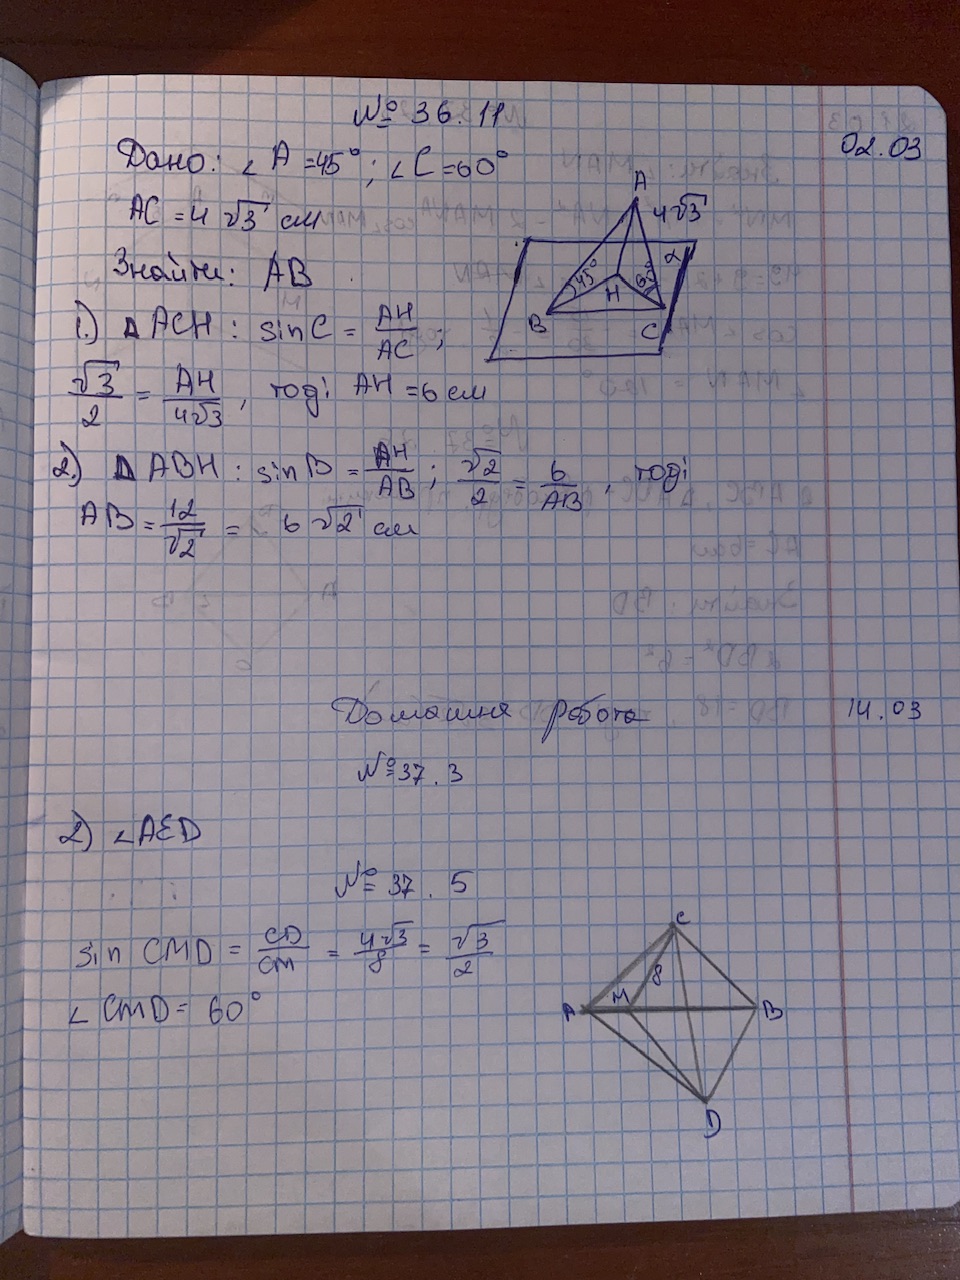 № 36.11
02.03
Дано: ∠A =45°; ∠C=60°
AC = 4√3 см
Знайти: AB
A
4√3
α
45°
60°
H
B
C
1.) △ACH: sinC = AH/AC;
√3/2 = AH/4√3, тоді AH =6 см
2.) △ABH: sinB = AH/AB; √2/2 = 6/AB, тоді
AB = 12/√2 = 6√2 см
Домашня робота
14.03
№37.3
2) ∠AED
№ 37.5
sin CMD = CD/CM = 4√3/8 = √3/2
∠CMD= 60°
C
8
A
M
B
D